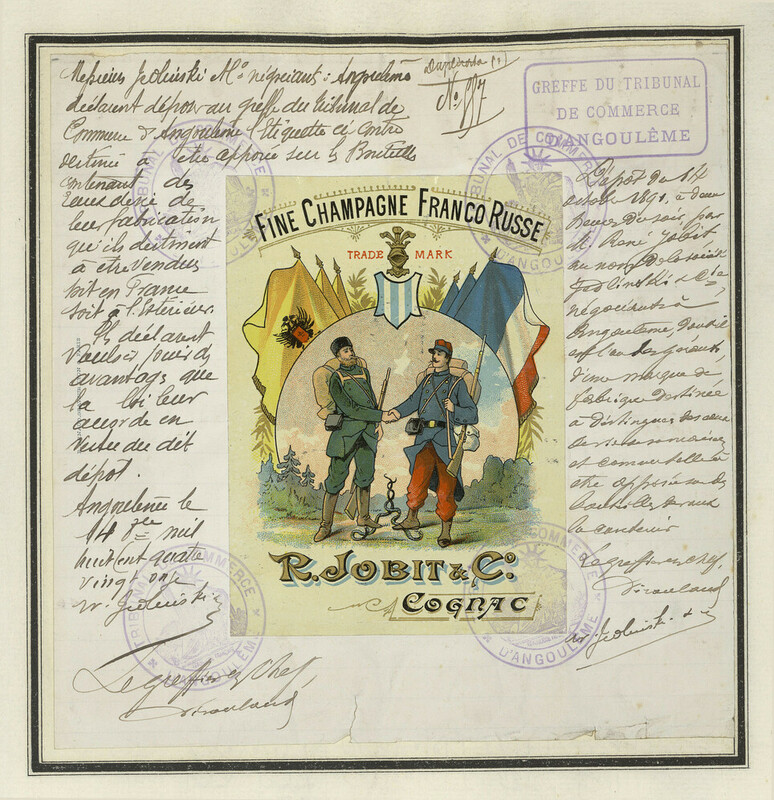 Messieurs Jzolinski & Cⁱᵉ négociants à Angoulême
déclarent déposer au greffe du tribunal de
Commerce d'Angoulême l'étiquette ci contre
destinée à être apposée sur les Bouteilles
contenant des
Eaux de vie de
leur fabrication
qu'ils destinent
à être vendues
soit en France
soit à l'extérieur.
Ils déclarent
vouloir jouir des
avantages que
la loi leur
accorde en
vertu du dit
dépôt.
Angoulême le
14 mil
huit cent quatre
vingt onze
Le greffier en chef
Duplicata (1)
No 997
GREFFE DU TRIBUNAL
DE COMMERCE
D'ANGOULÊME
TRIBUNAL DE COMMERCE
D'ANGOULÊME
FINE CHAMPAGNE FRANCO RUSSE
TRADE MARK
R. JOBIT & Cº.
COGNAC
Dépôt du 14
octobre 1891, à deux
heures du soir, par
M. René Jobit
au nom de la société
négociants à
Angoulême, dont il
est l'un des gérants,
d'une marque de
fabrique destinée
à distinguer
et commerciale à
être apposée sur des
bouteilles
Le greffier en chef,